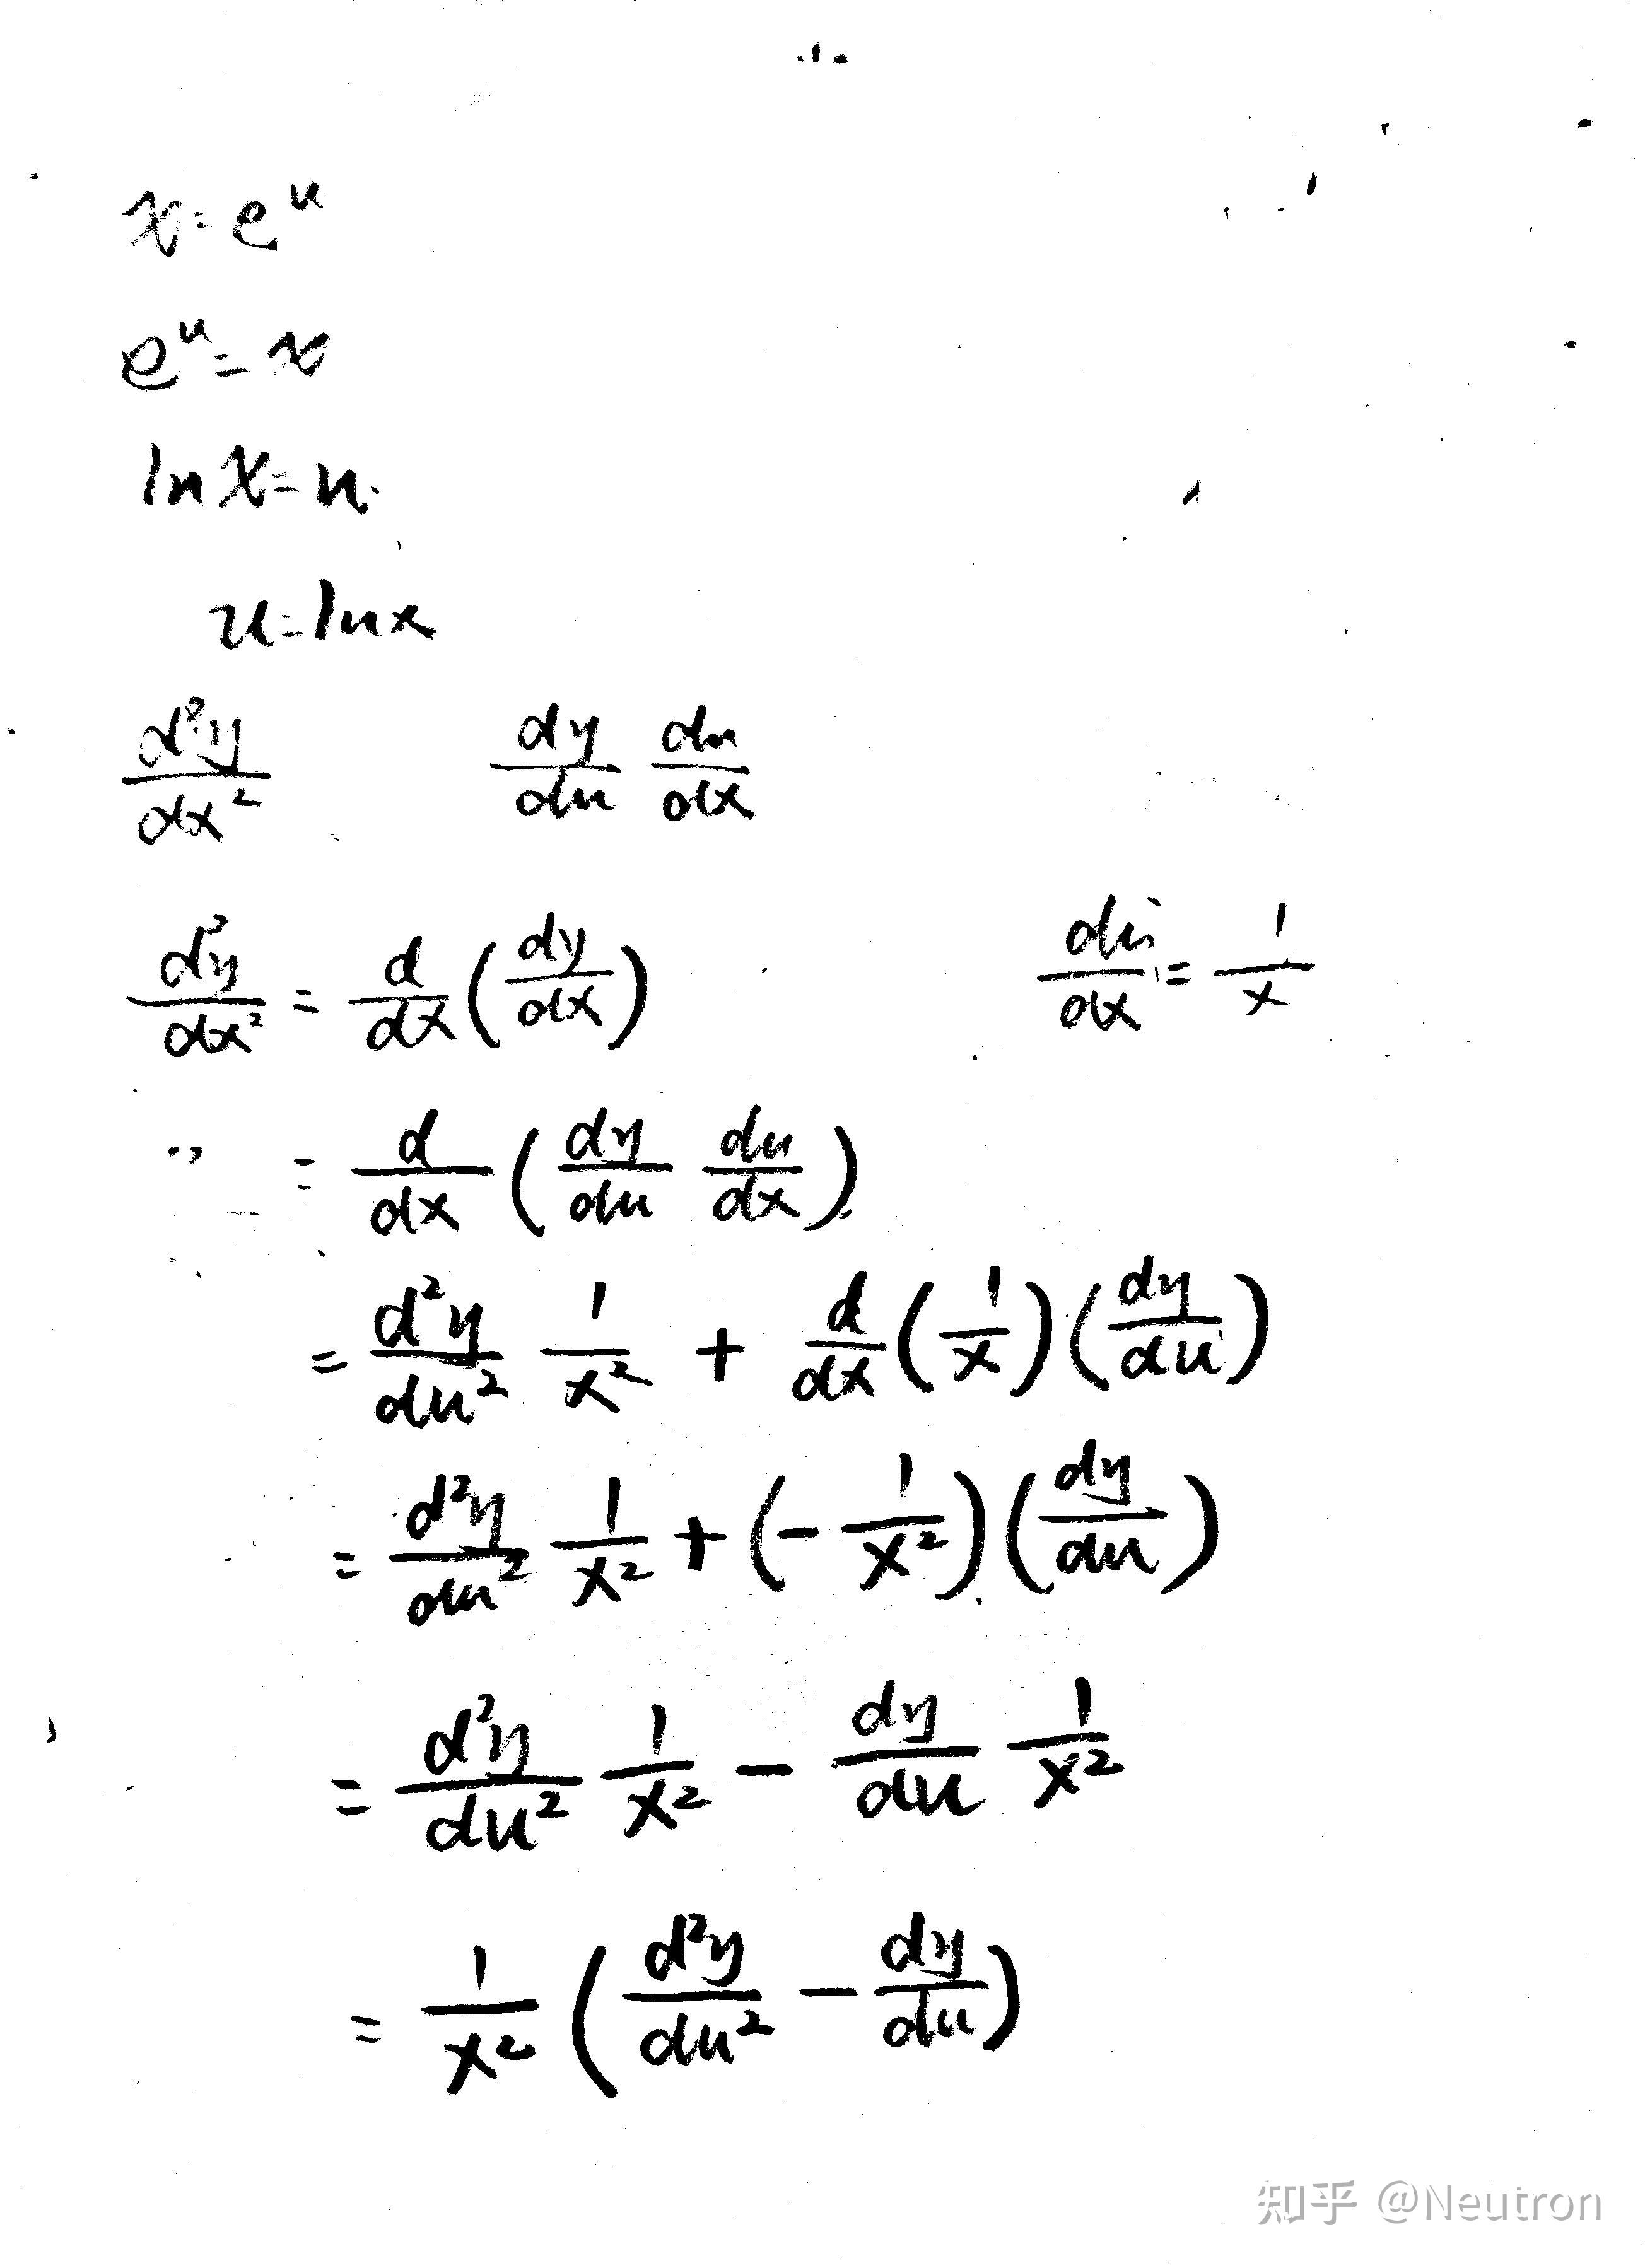 x = e^u
e^u = x
ln x = u.
u = ln x
d²y/dx²   dy/du du/dx
d²y/dx² = d/dx (dy/dx)   du/dx = 1/x
〃 = d/dx (dy/du du/dx).
= d²y/du² 1/x² + d/dx (1/x) (dy/du)
= d²y/du² 1/x² + (- 1/x²) (dy/du)
= d²y/du² 1/x² - dy/du 1/x²
= 1/x² (d²y/du² - dy/du)
知乎 @Neutron